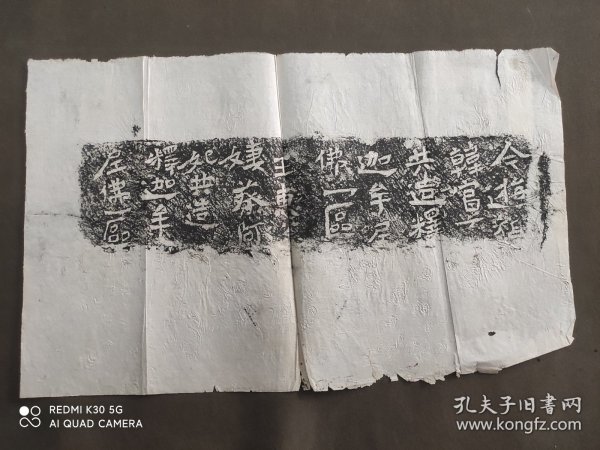 令
韓
共造釋
迦牟尼
佛一區
主
妻蔡阿
妃共造
釋迦牟
尼佛一區
REDMI K30 5G
AI QUAD CAMERA
孔夫子旧書网
www.kongfz.com